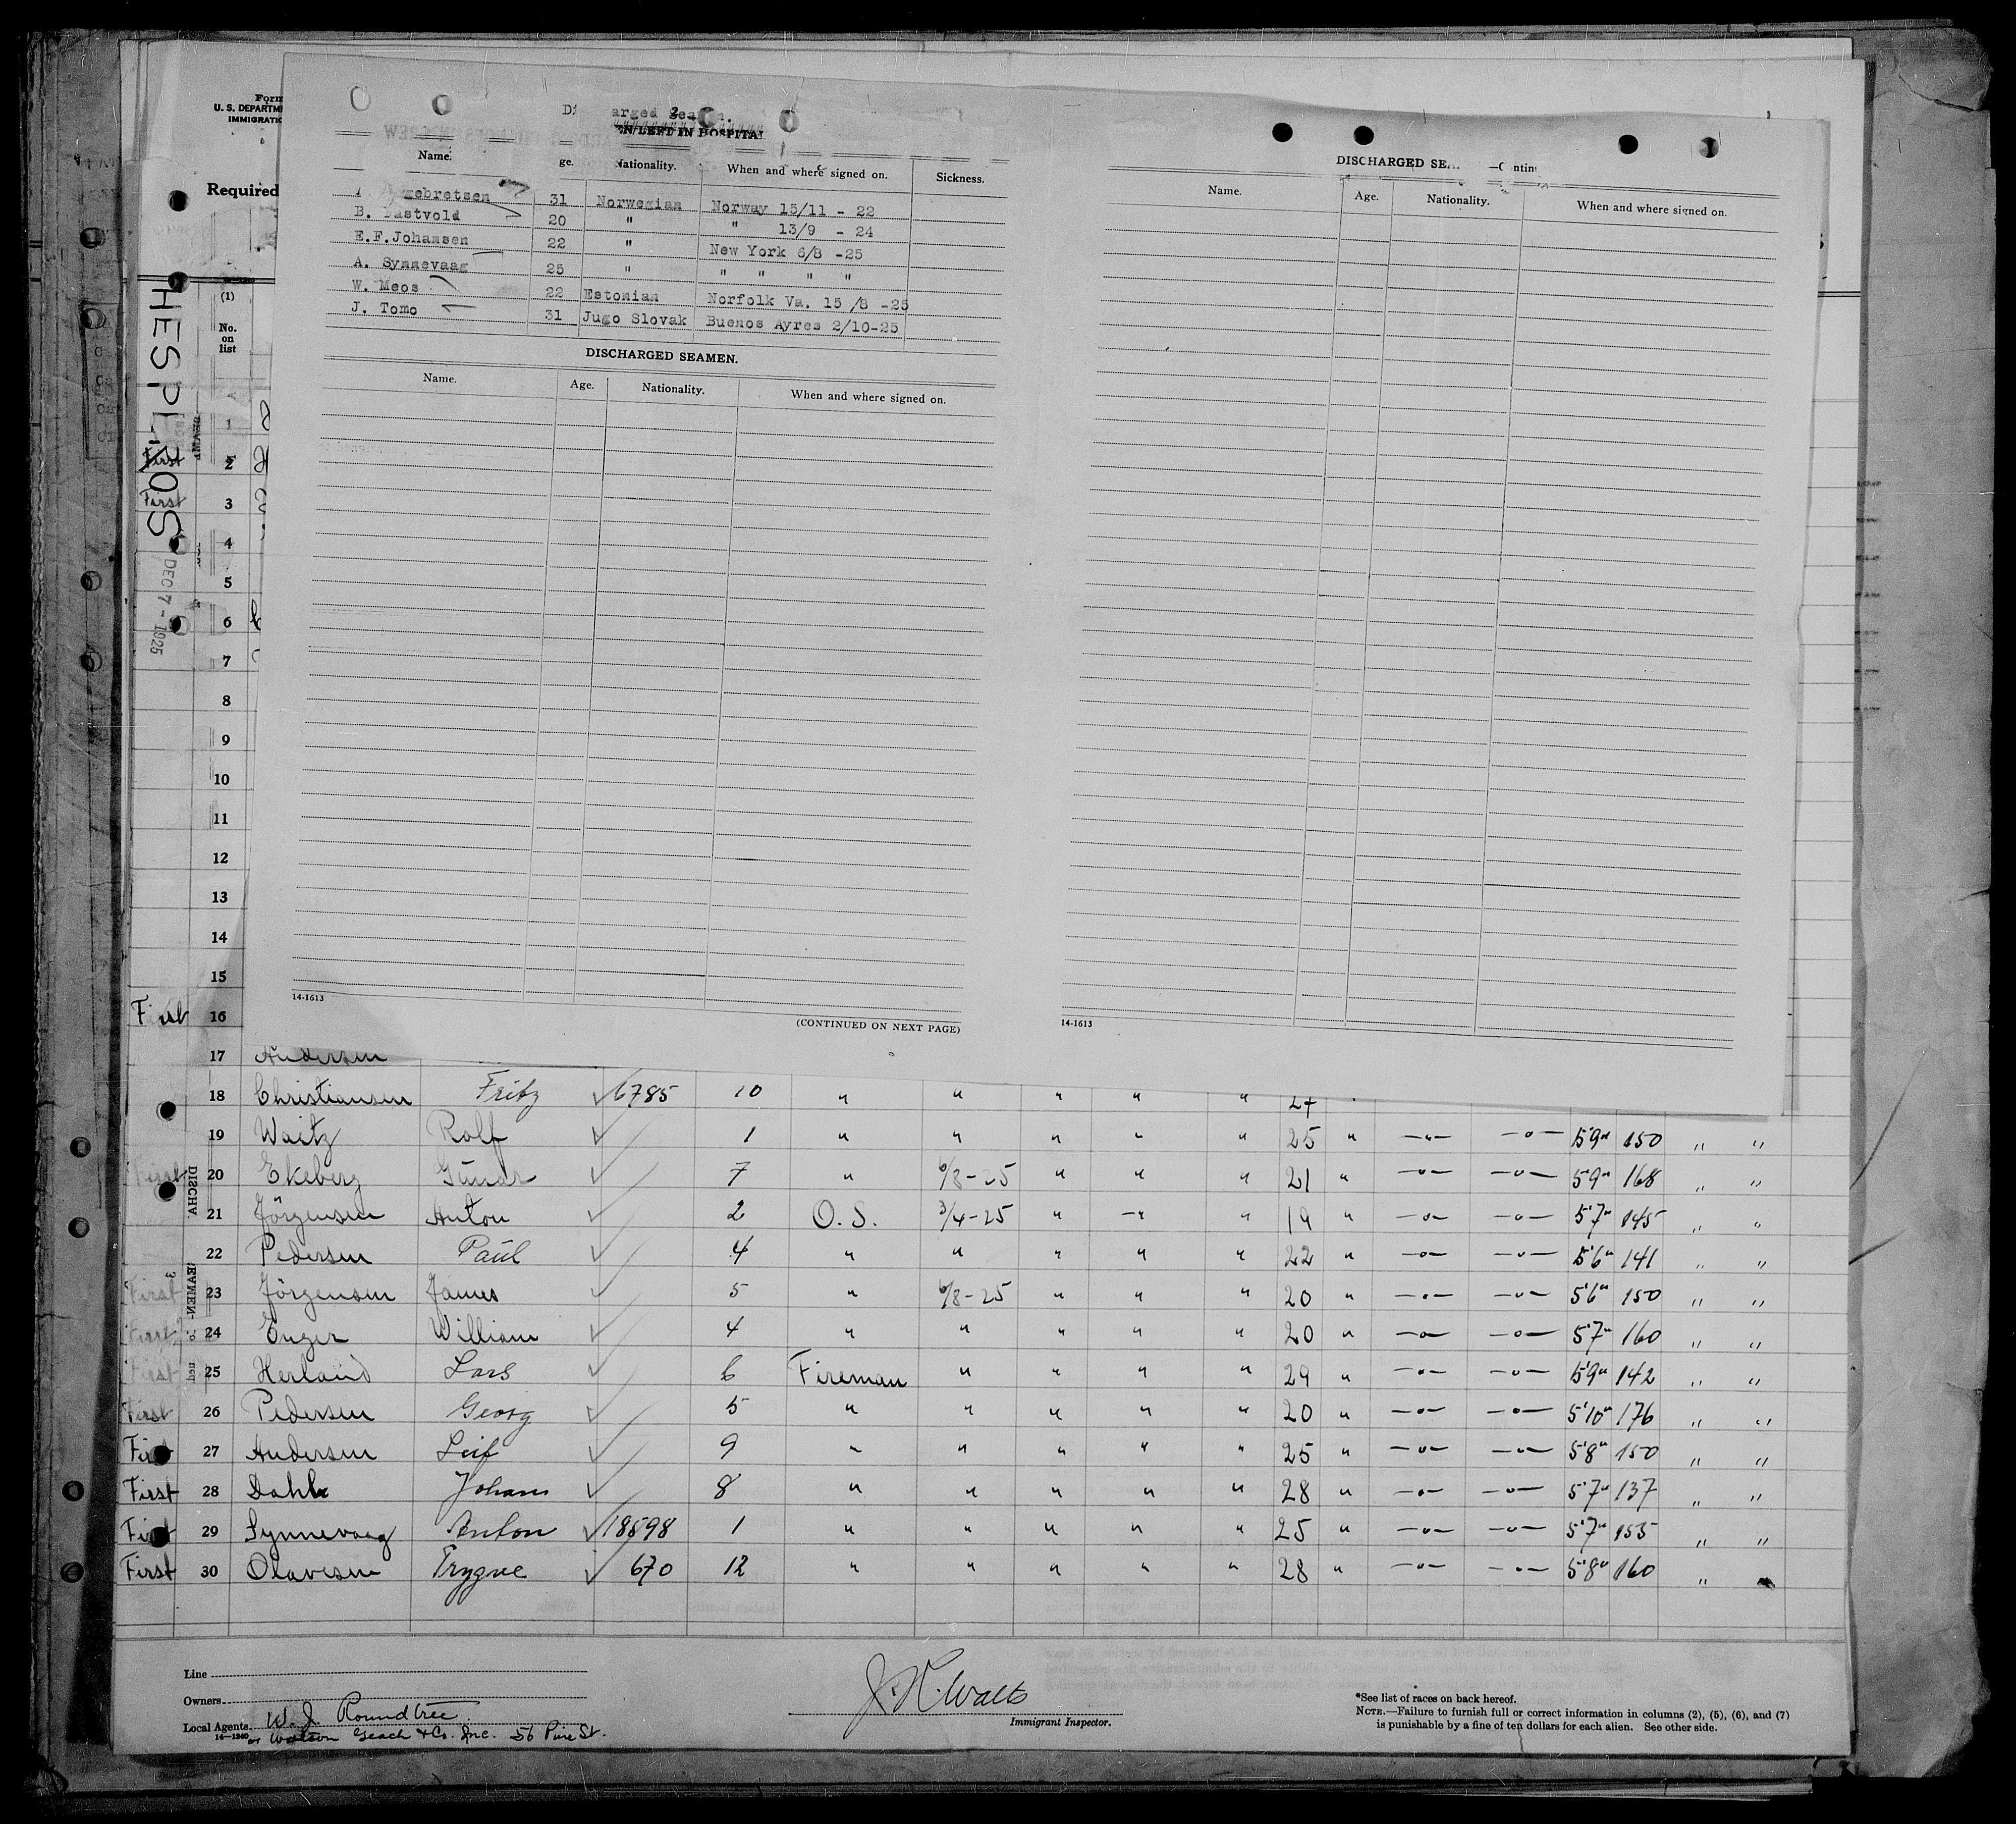 Form
U. S. DEPARTM
IMMIGRATIO
Required
HESPEROS
DEC 7 - 1925
(1)
No. on list
LEFT IN HOSPITAL
Name. ge. Nationality. When and where signed on. Sickness.
gebretsen 31 Norwegian Norway 15/11 - 22
B. astvold 20 " " 13/9 - 24
E.F.Johansen 22 " New York 6/8 -25
A. Synnevaag 25 " " " " "
W. Meos 22 Estonian Norfolk Va. 15 /8 -25
J. Tomo 31 Jugo Slovak Buenos Ayres 2/10-25
DISCHARGED SEAMEN.
Name. Age. Nationality. When and where signed on.
14-1613
(CONTINUED ON NEXT PAGE)
DISCHARGED SE —Contin
Name. Age. Nationality. When and where signed on.
14-1613
1
First 2
First 3
4
5
6
7
8
9
10
11
12
13
14
15
First 16
17 Andersen
18 Christiansen Fritz ✓ 6785 10 " " " " "
19 Waitz Rolf ✓ 1 " " " " " 25 " —"— —"— 5'9" 150 " "
First 20 Ekeberg Gunar ✓ 7 " 6/8-25 " " " 21 " —"— —"— 5'9" 168 " "
21 Jörgensen Anton ✓ 2 O.S. 3/4-25 " " " 19 " —"— —"— 5'7" 145 " "
22 Pedersen Paul ✓ 4 " " " " " 22 " —"— —"— 5'6" 141 " "
First 23 Jörgensen James ✓ 5 " 6/8-25 " " " 20 " —"— —"— 5'6" 150 " "
First 24 Enger William ✓ 4 " " " " " 20 " —"— —"— 5'7" 160 " "
First 25 Herland Lars ✓ 6 Fireman " " " " 29 " —"— —"— 5'9" 142 " "
First 26 Pedersen Georg ✓ 5 " " " " " 20 " —"— —"— 5'10" 176 " "
First 27 Andersen Leif ✓ 9 " " " " " 25 " —"— —"— 5'8" 150 " "
First 28 Dahl Johans ✓ 8 " " " " " 28 " —"— —"— 5'7" 137 " "
First 29 Synnevaag Anton ✓ 18598 1 " " " " " 25 " —"— —"— 5'7" 155 " "
First 30 Olavesen Trygve ✓ 670 12 " " " " " 28 " —"— —"— 5'8" 160 " "
Line
Owners
Local Agents W. J. Roundtree
14-1240 or Watson Geach & Co. Inc. 56 Pine St.
Immigrant Inspector.
*See list of races on back hereof.
NOTE.—Failure to furnish full or correct information in columns (2), (5), (6), and (7)
is punishable by a fine of ten dollars for each alien. See other side.